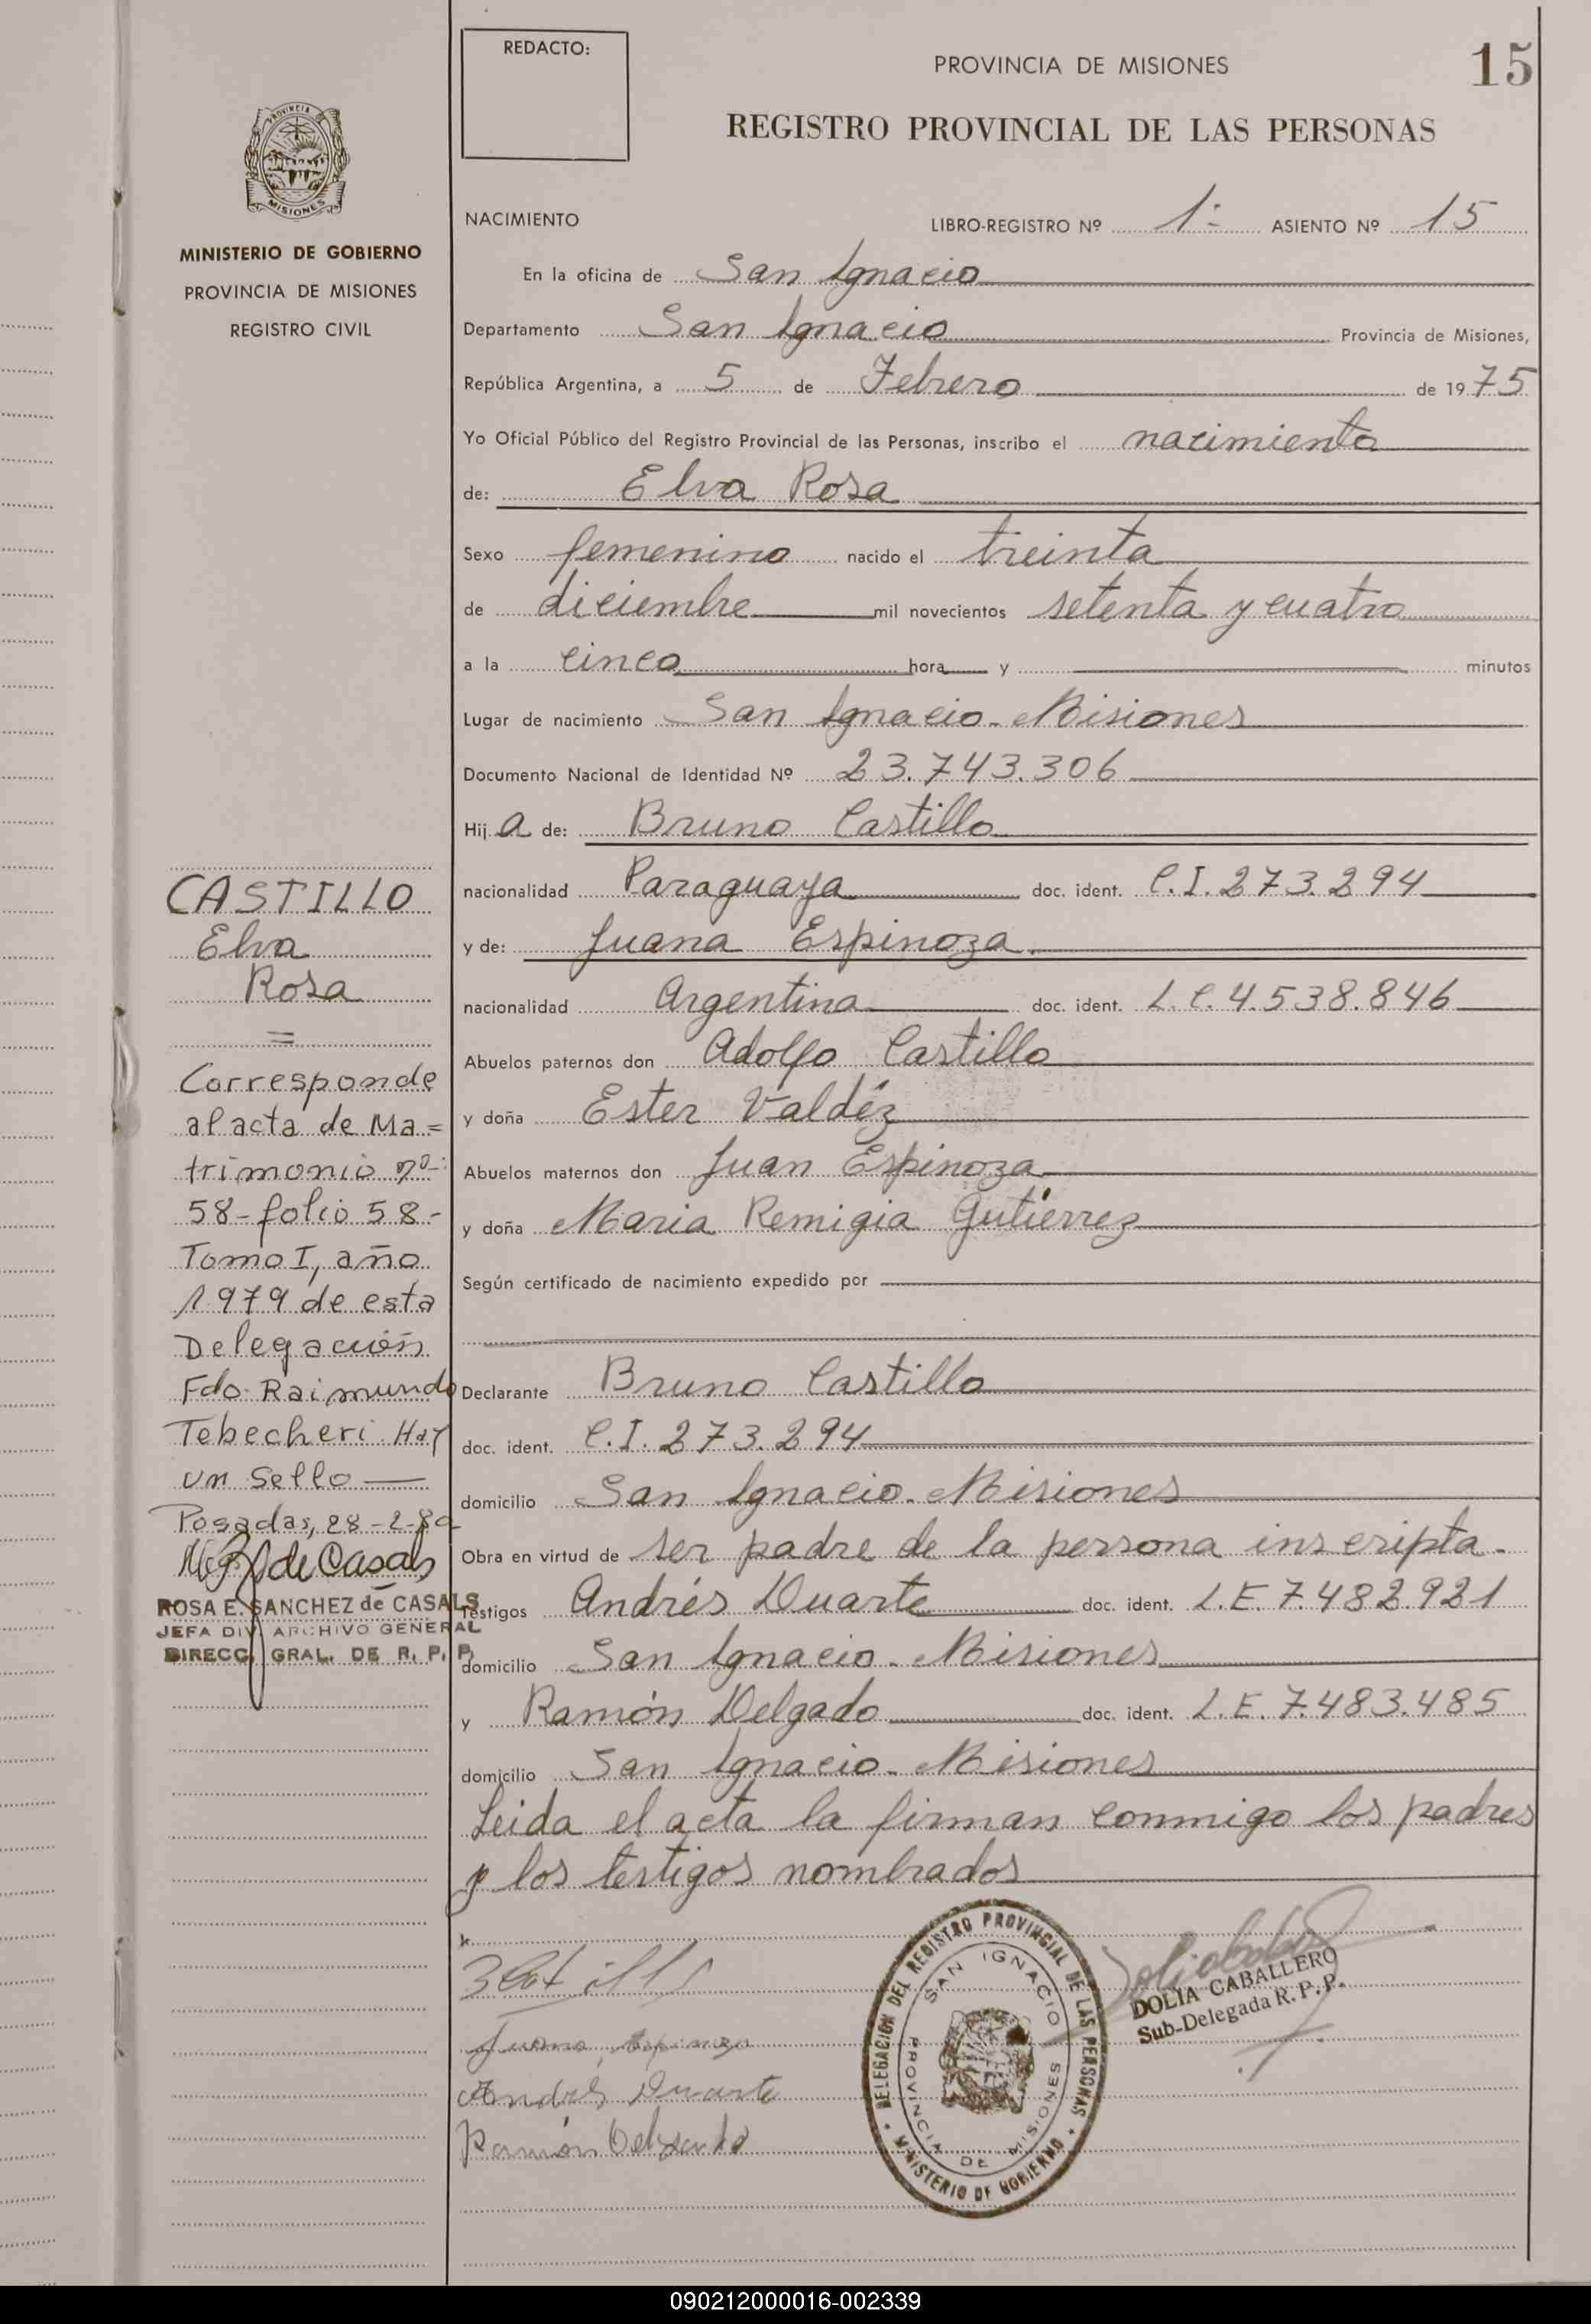 REDACTO:
PROVINCIA DE MISIONES
15
REGISTRO PROVINCIAL DE LAS PERSONAS
PROVINCIA
MISIONES
MINISTERIO DE GOBIERNO
PROVINCIA DE MISIONES
REGISTRO CIVIL
NACIMIENTO LIBRO-REGISTRO Nº 1º- ASIENTO Nº 15
En la oficina de San Ignacio
Departamento San Ignacio Provincia de Misiones,
República Argentina, a 5 de Febrero de 1975
Yo Oficial Público del Registro Provincial de las Personas, inscribo el nacimiento
de: Elva Rosa
Sexo femenino nacido el treinta
de diciembre mil novecientos setenta y cuatro
a la cinco hora y minutos
Lugar de nacimiento San Ignacio - Misiones
Documento Nacional de Identidad Nº 23.743.306
Hija de: Bruno Castillo
nacionalidad Paraguaya doc. ident. C.I. 273.294
y de: Juana Espinoza
nacionalidad Argentina doc. ident. L.C. 4.538.846
Abuelos paternos don Adolfo Castillo
y doña Ester Valdéz
Abuelos maternos don Juan Espinoza
y doña Maria Remigia Gutiérrez
Según certificado de nacimiento expedido por
Declarante Bruno Castillo
doc. ident. C.I. 273.294
domicilio San Ignacio - Misiones
Obra en virtud de ser padre de la persona inscripta.
Testigos Andrés Duarte doc. ident. L.E. 7.482.921
domicilio San Ignacio - Misiones
y Ramón Delgado doc. ident. L.E. 7.483.485
domicilio San Ignacio - Misiones
Leida el acta la firman conmigo los padres
y los testigos nombrados
CASTILLO
Elva
Rosa
=
Corresponde
al acta de Ma=
trimonio nº-
58-folio 58-
Tomo I, año
1979 de esta
Delegación
Fdo: Raimundo
Tebecheri. Hay
un sello
Posadas, 28-2-80
de Casals
ROSA E. SANCHEZ de CASALS
JEFA DIV. ARCHIVO GENERAL
DIRECC. GRAL. DE R. P. P.
Juana Espinoza
Andrés Duarte
Ramón Delgado
DELEGACION DEL REGISTRO PROVINCIAL DE LAS PERSONAS
MINISTERIO DE GOBIERNO
SAN IGNACIO
PROVINCIA DE MISIONES
DOLIA CABALLERO
Sub-Delegada R. P. P.
090212000016-002339